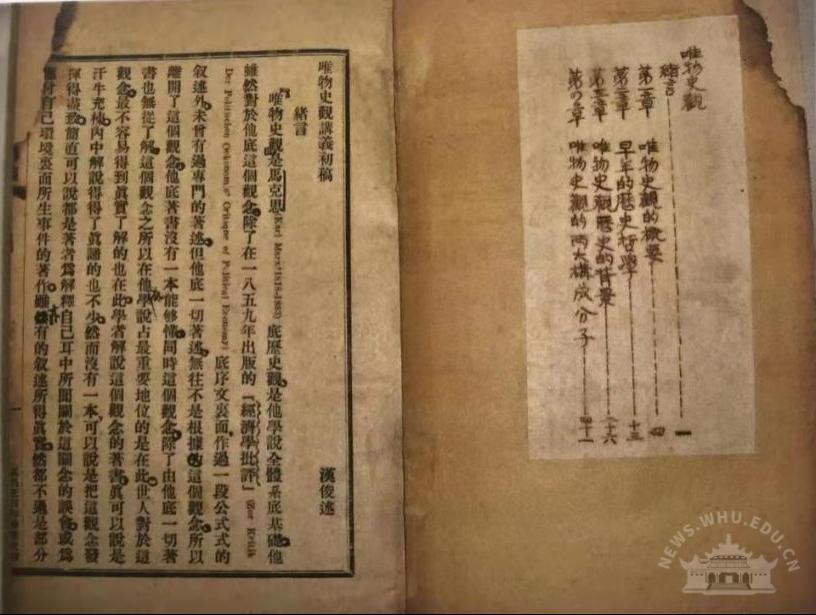 唯物史觀
緒言 一
第一章 唯物史觀的概要 四
第二章 早年的歷史哲學 十三
第三章 唯物史觀歷史的背景 二十六
第四章 唯物史觀的兩大構成分子 四十一
唯物史觀講義初稿 漢俊述
緒言
唯物史觀是馬克思(Karl Marx 1818-1883)底歷史觀是他學說全體系底基礎他
雖然對於他底這個觀念除了在一八五九年出版的「經濟學批評」(Zur Kritik
Der Politischen Oekonomie Critique of Political Economy)底序文裏面作過一段公式式的
叙述外未曾有過專門的著述但他底一切著述無往不是根據的這個觀念所以
離開了這個觀念他底著書沒有一本能够懂同時這個觀念除了由他底一切著
書也無從了解這個觀念之所以在他學說占最重要地位的是在此世人對於這
觀念最不容易得到眞實了解的也在此學者解說這個觀念的著書眞可以說是
汗牛充棟內中解說得得了眞諦的也不少然而沒有一本可以說是把這觀念發
揮得盡致簡直可以說都是著者爲解釋自己耳中所聞關於這個觀念的誤會或爲
應付自己環境裏面所生事件的著作雖然有的叙述所得眞實然都不過是部分
NEWS.WHU.EDU.CN